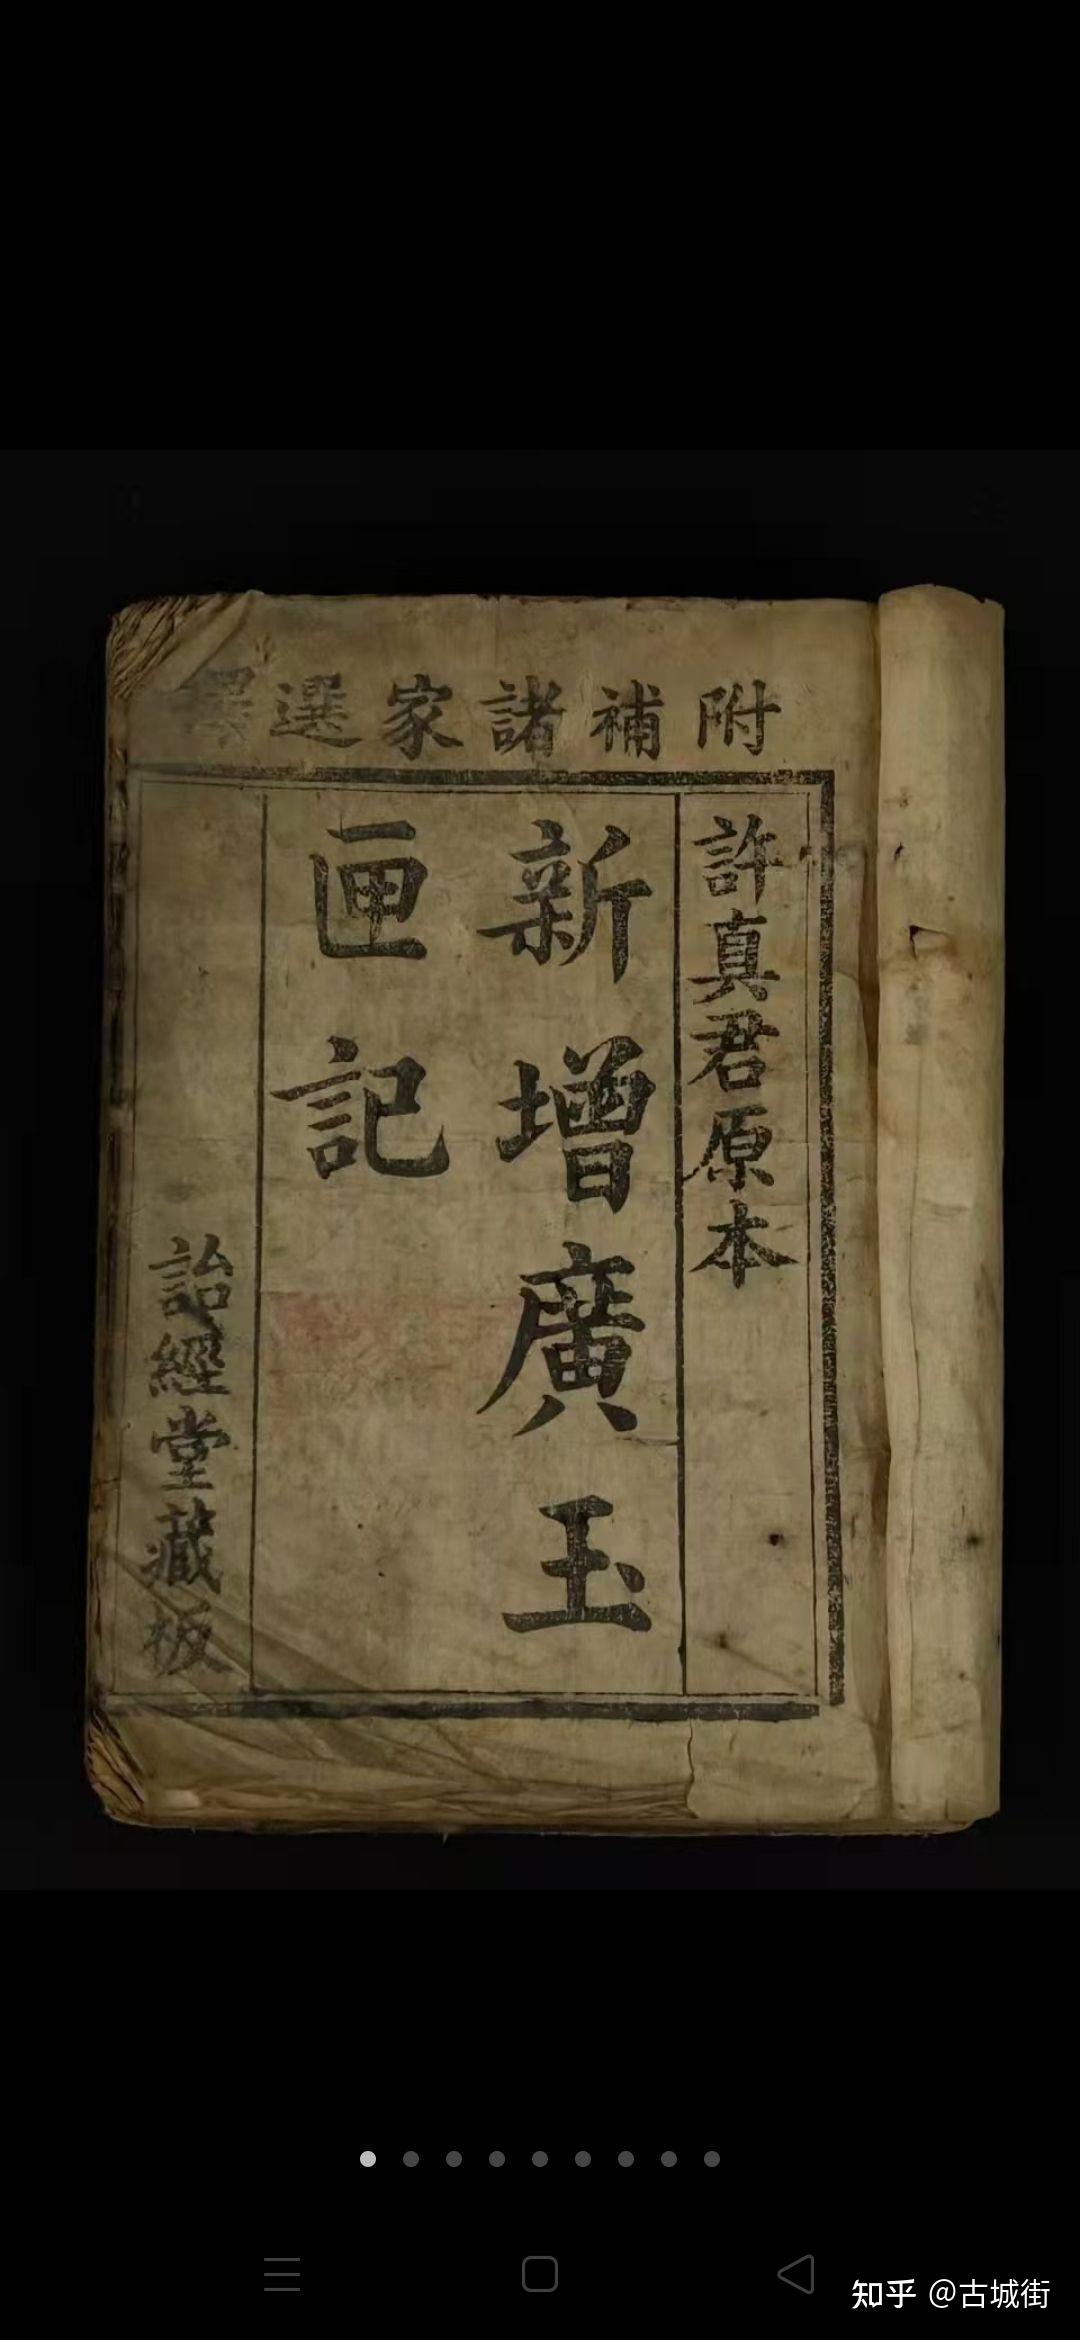 附補諸家選擇
許真君原本
新增廣玉
匣記
詒經堂藏板
知乎 @古城街